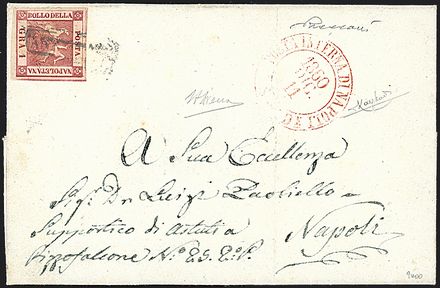 BOLLO DELLA
POSTA
NAPOLETANA
GRA 1
POSTA INTERNA DI NAPOLI
1860
11
A Sua Eccellenza
Sig.r Dn Luigi Paoliello
Supportico di Astuti a
Pizzofalcone N.º 29. 2.º P.
Napoli
9400